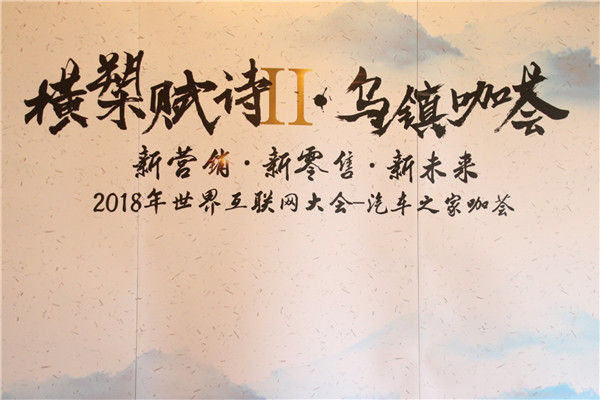 横槊赋诗II·乌镇咖荟
新营销·新零售·新未来
2018年世界互联网大会-汽车之家咖荟